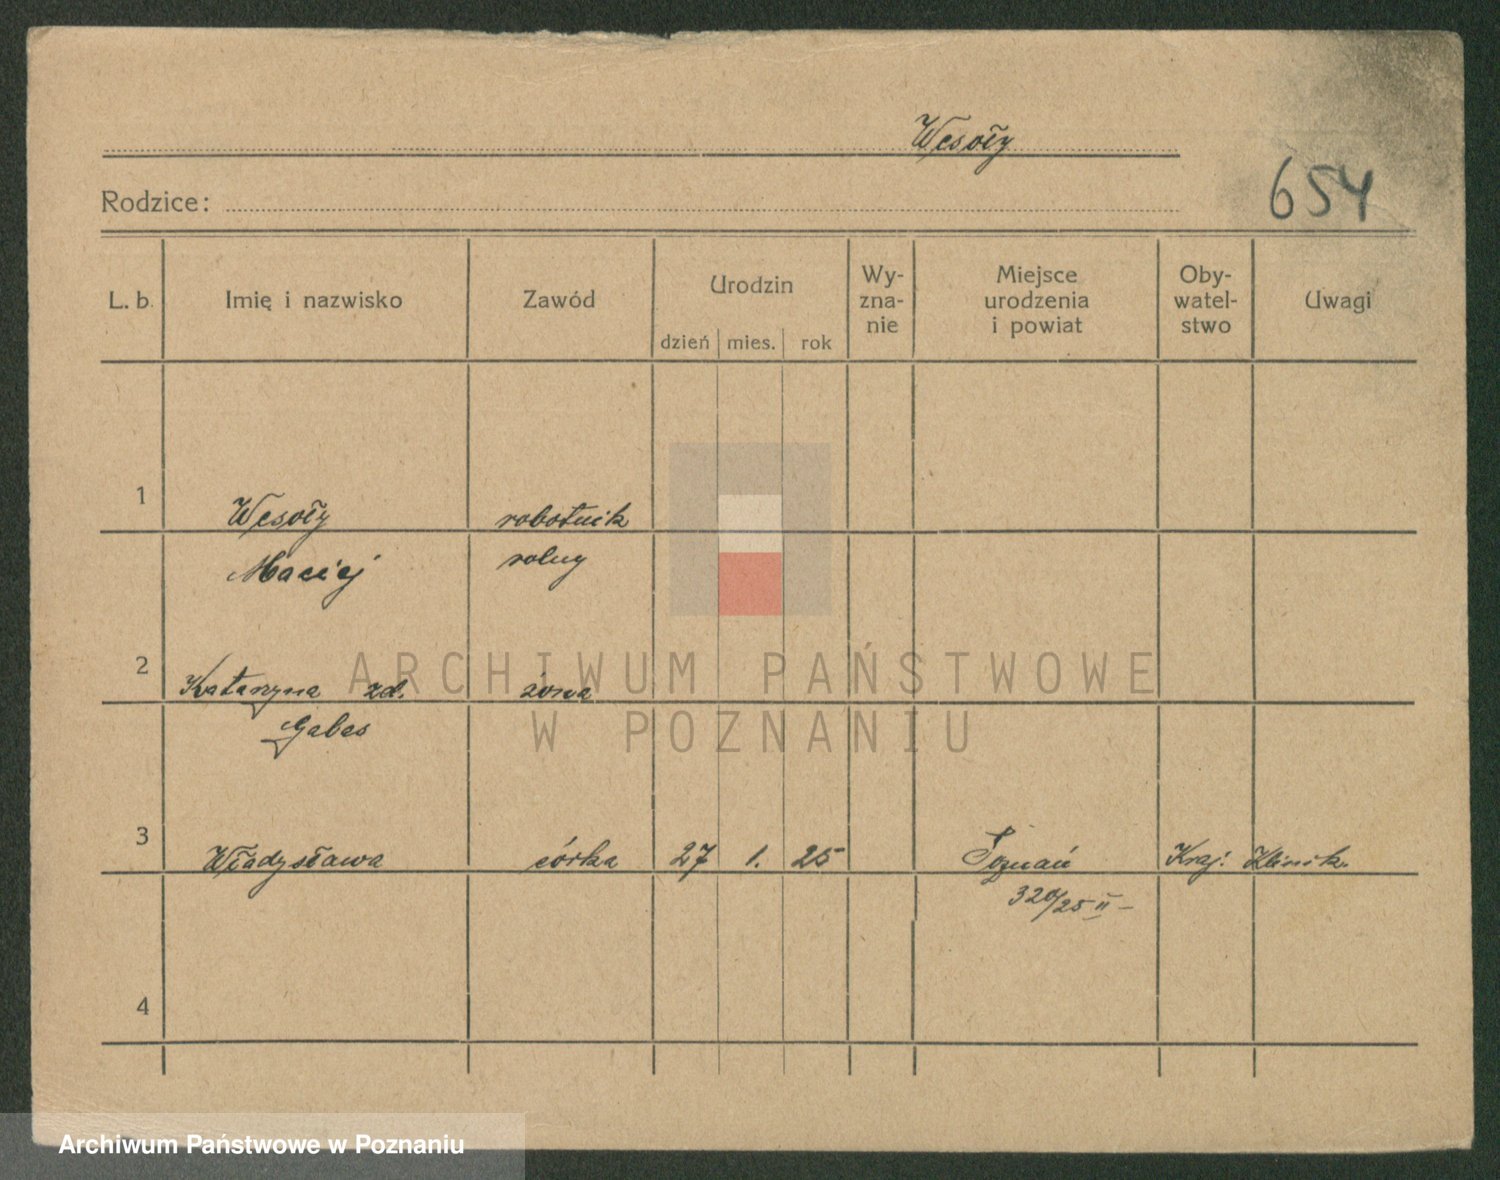 Wesoły
654
Rodzice:
L. b. Imię i nazwisko Zawód Urodzin Wy- Miejsce Oby- Uwagi
zna- urodzenia watel-
nie i powiat stwo
dzień mies. rok
1 Wesoły robotnik
Maciej rolny
2 Katarzyna zd. żona
Gabas
3 Władysława córka 27 1. 25 Poznań Kraj. Klinik.
320/25 II
4
ARCHIWUM PAŃSTWOWE
W POZNANIU
Archiwum Państwowe w Poznaniu